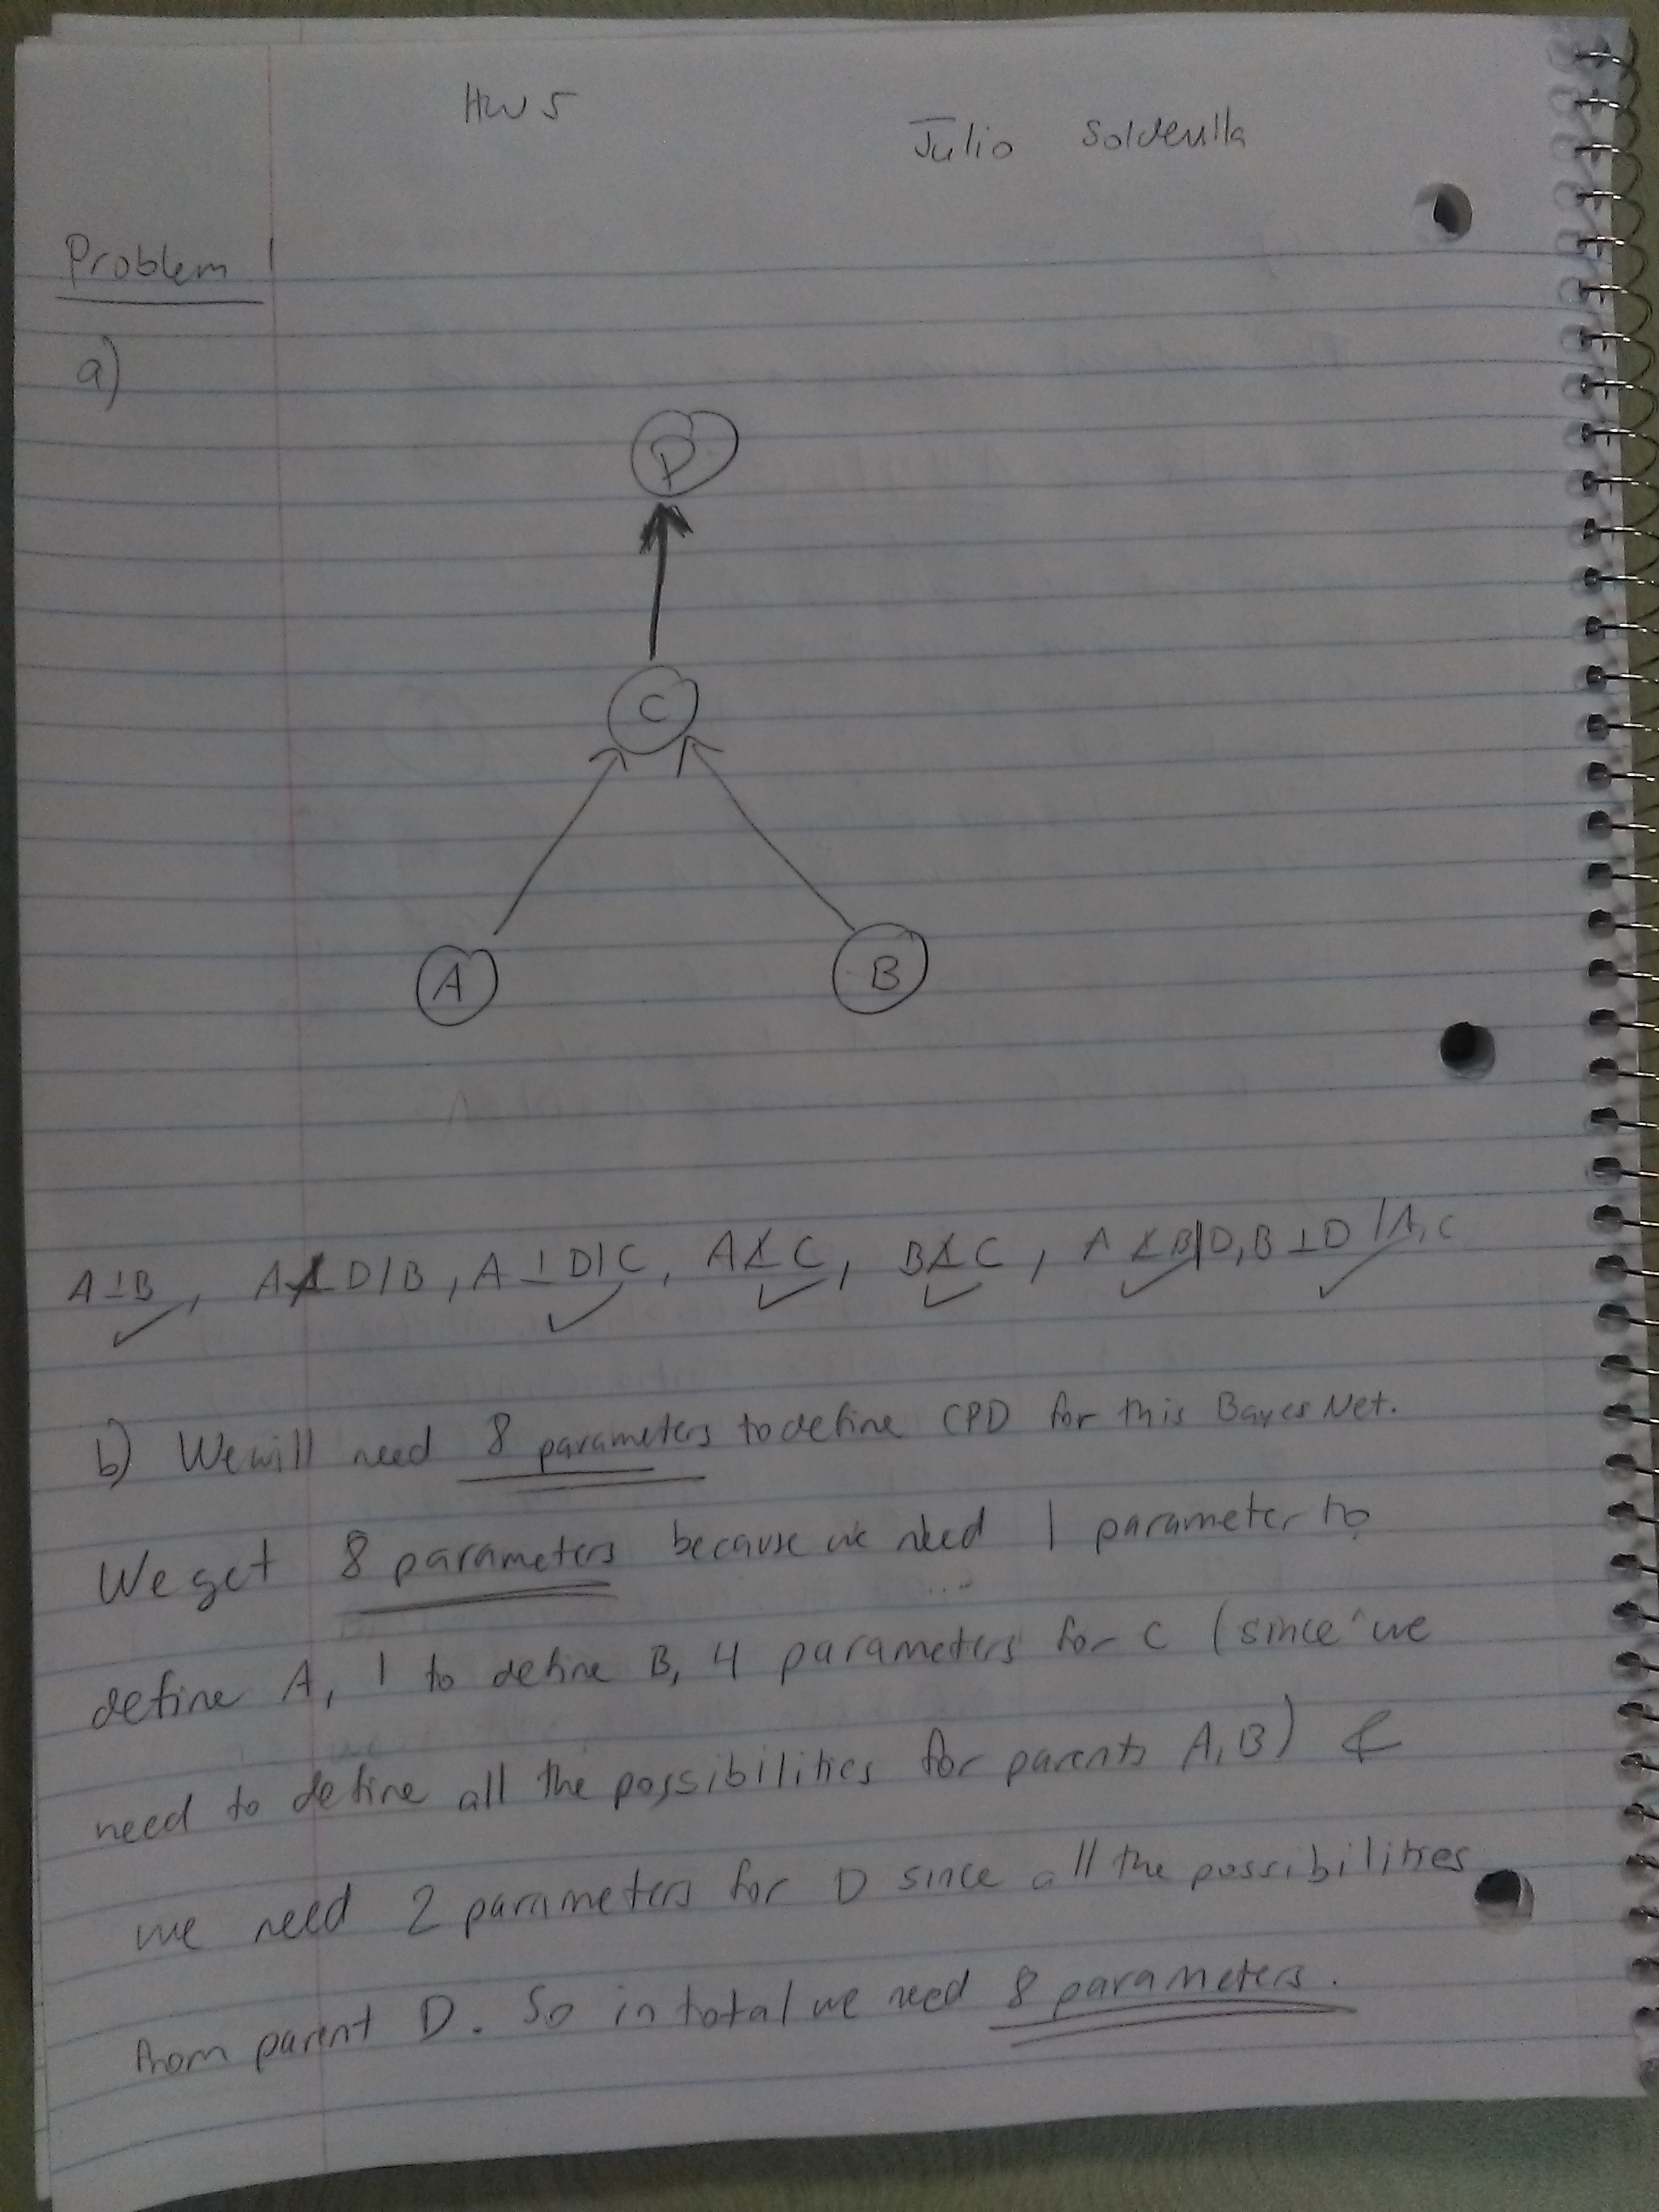 HW 5
Julio
Problem 1
a)
D
C
A
B
A⊥B, A⊥̸D|B, A⊥D|C, A⊥̸C, B⊥̸C, A⊥̸B|D, B⊥D|A,C
✓ ✓ ✓ ✓ ✓ ✓
b) We will need 8 parameters to define CPD for this Bayes Net.
We get 8 parameters because we need 1 parameter to
define A, 1 to define B, 4 parameters for C (since we
need to define all the possibilities for parents A, B) &
we need 2 parameters for D since all the possibilities
from parent D. So in total we need 8 parameters.